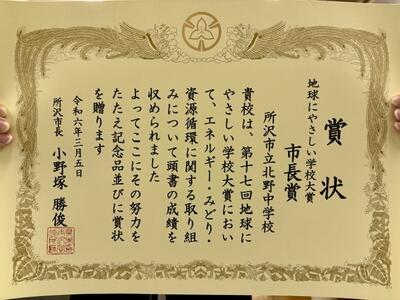 賞状
地球にやさしい学校大賞
市長賞
所沢市立北野中学校
貴校は、第十七回地球に
やさしい学校大賞におい
て、エネルギー・みどり・
資源循環に関する取り組
みについて頭書の成績を
収められました
よってここにその努力を
たたえ記念品並びに賞状
を贈ります
令和六年三月五日
所沢市長 小野塚 勝俊